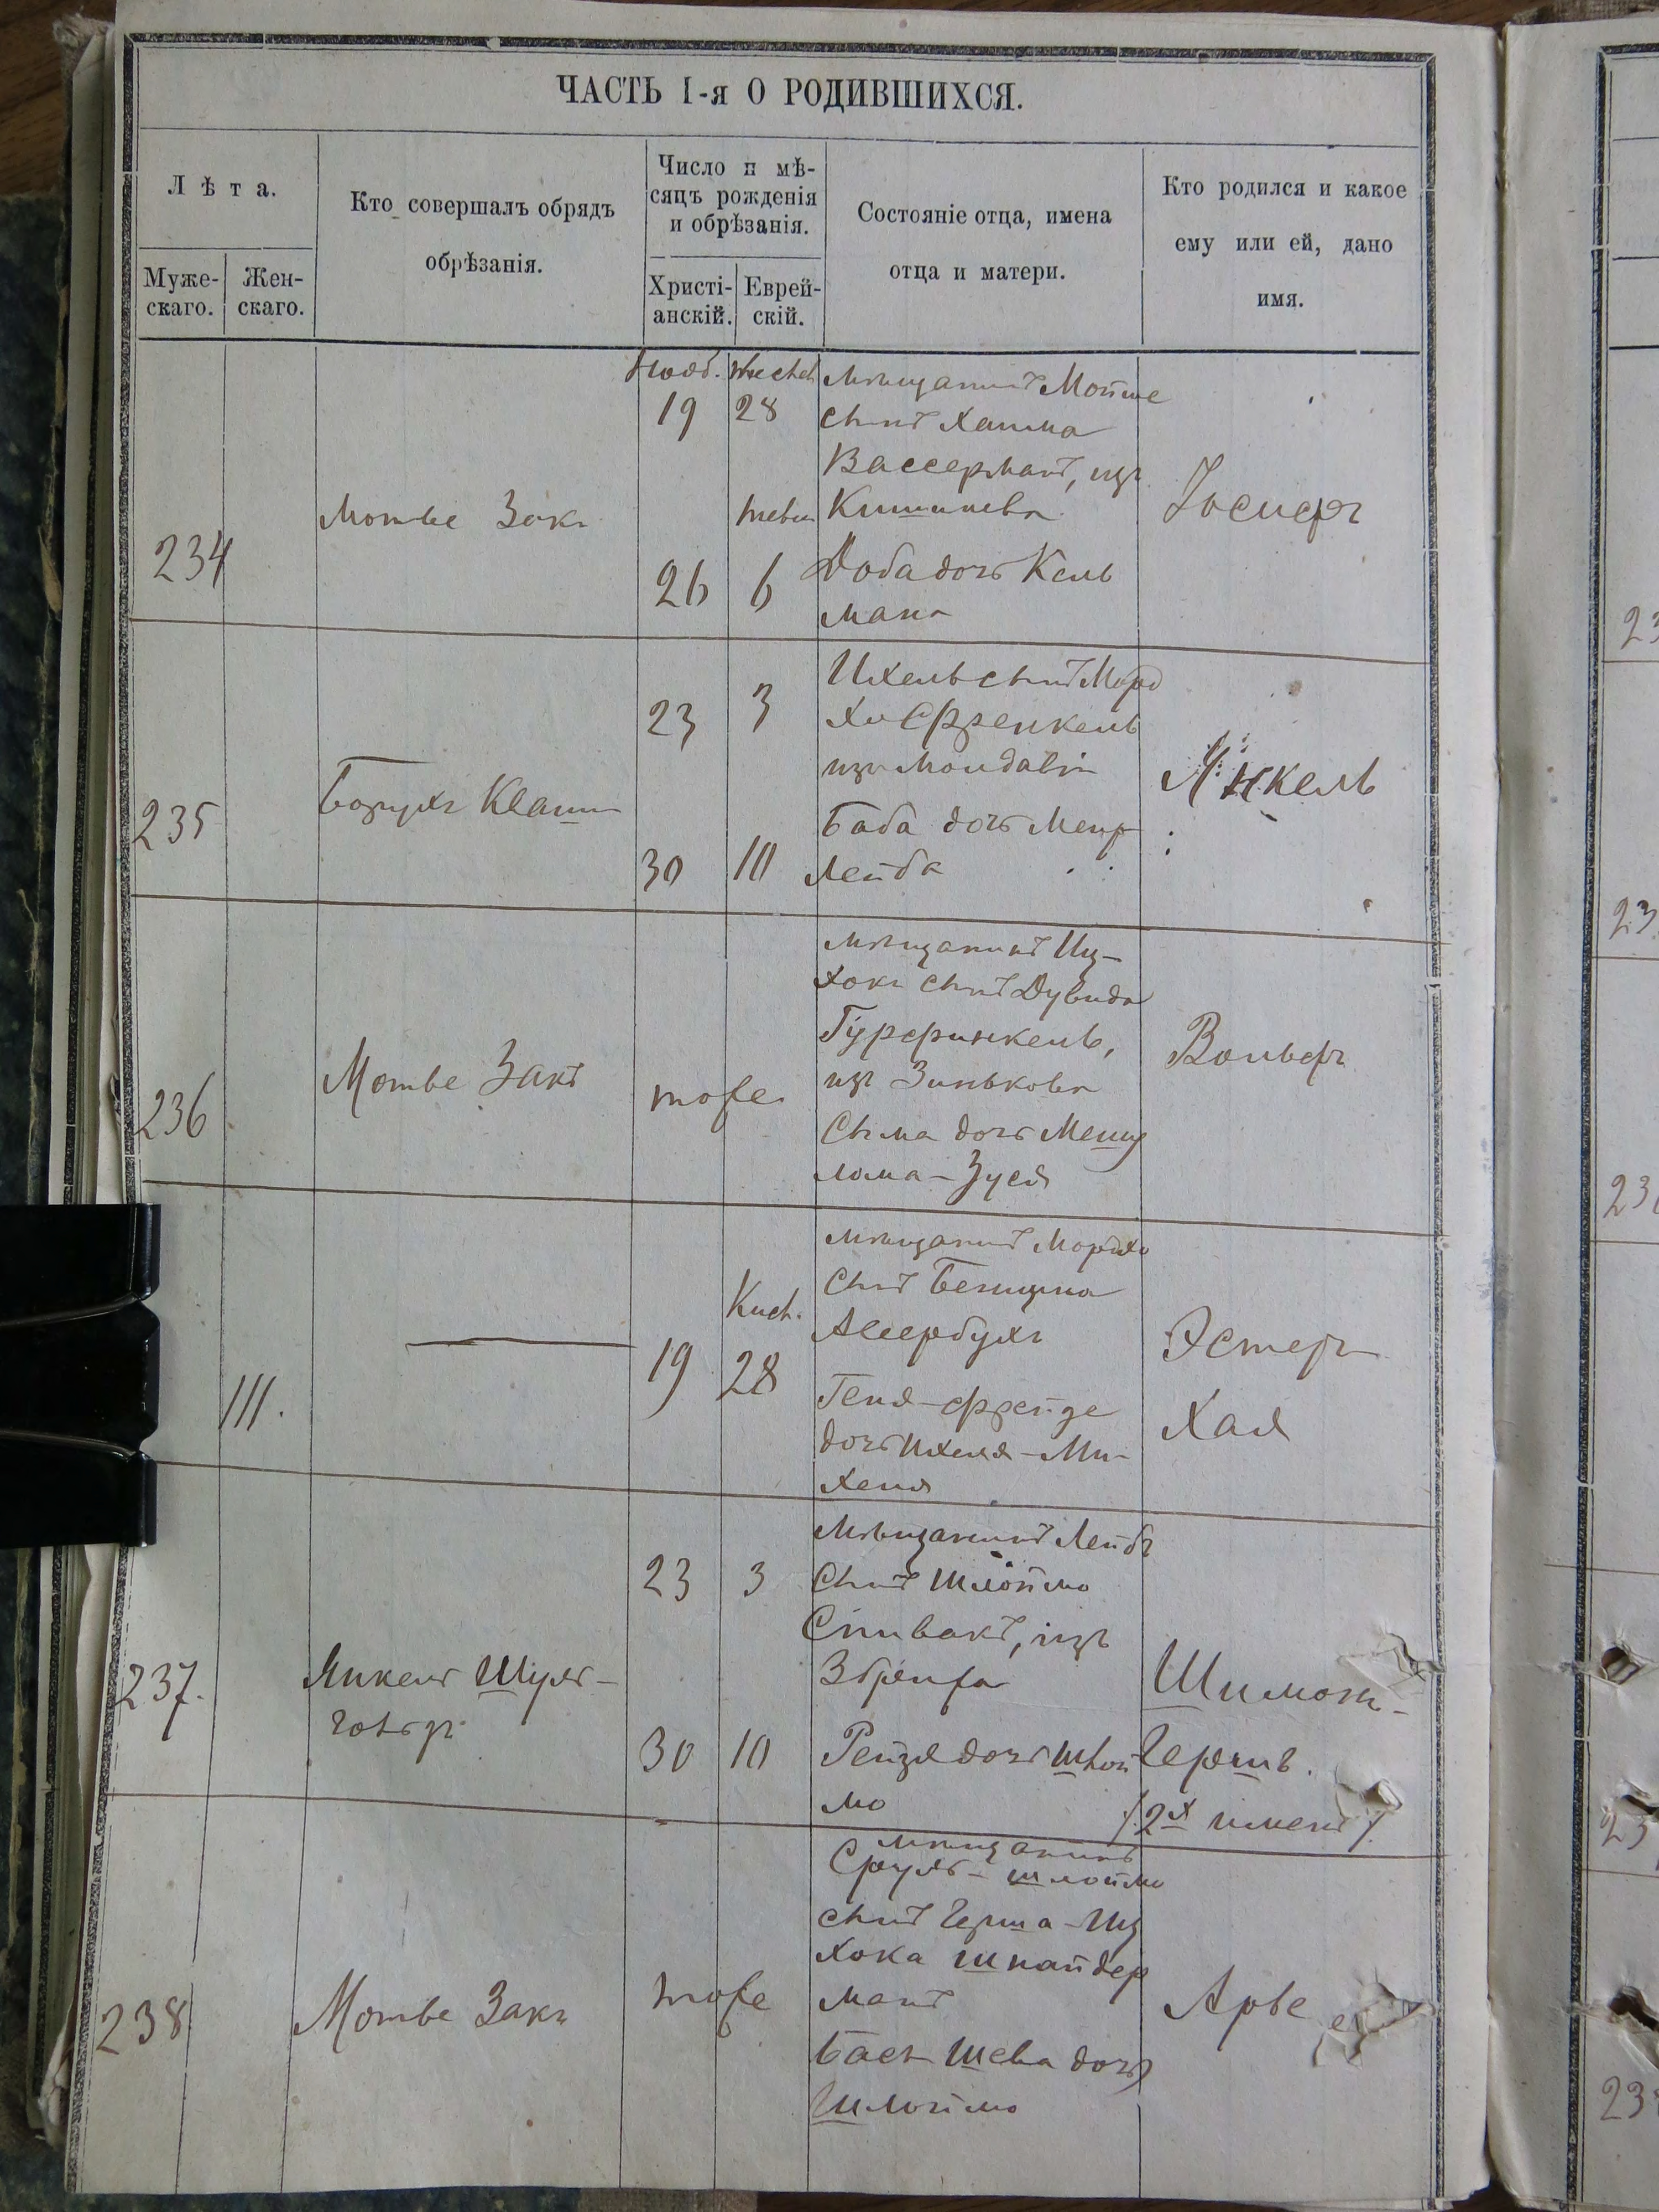 ЧАСТЬ I-я О РОДИВШИХСЯ.
Лѣта.
Муже-
скаго.
Жен-
скаго.
Кто совершалъ обрядъ
обрѣзанія.
Число и мѣ-
сяцъ рожденія
и обрѣзанія.
Христі-
анскій.
Еврей-
скій.
Состояніе отца, имена
отца и матери.
Кто родился и какое
ему или ей, дано
имя.
234
Мотье Закъ
Нояб.
19 28
26 6
мѣщанинъ Мойше
сынъ Хаима
Вассерманъ, изъ
Кишинева
Доба дочь Кель
мана
Іосифъ
235
Борухъ
23 3
30 10
Ихель сынъ Морд
хо Френкель
изъ
Баба дочь Меир
Лейба
Янкель
236
Мотье Закъ
тоже
мѣщанинъ Иц-
хокъ сынъ Дувида
Гурфинкель,
изъ Зинькова
Сыма дочь Мешу
лома-Зуся
Вольфъ
111.
19 28
мѣщанинъ Мордхо
сынъ Бенциона
Ауербухъ
Геня-Фрейде
дочь Ихеля-Ми-
хеля
Эстеръ
Хая
237.
Янкель Шуль-
23 3
30 10
Мѣщанинъ Лейбъ
сынъ Шлоймо
Спивакъ, изъ
Рейзя дочь Шлой
мо
Шимонъ-
Гершъ.
/2х именъ/.
238
Мотье Закъ
тоже
мѣщанинъ
Сруль-Шлоймо
сынъ Герша-Иц
хока Шнайдер
манъ
Бася Шева дочь
Шлоймо
Арье
23
23
23
23
23